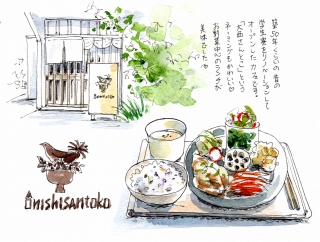 築50年くらいの昔の
学生寮をリノベーションして
オープンしたカフェです。
「大西さんとこ」という
ネーミングもかわいい♡
お野菜中心のランチが
美味でした♡
Onishisantoko